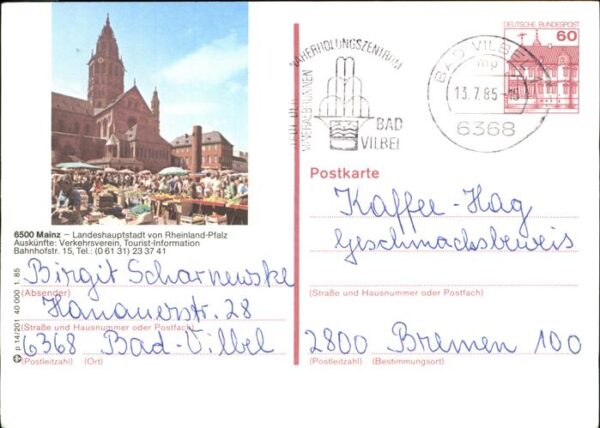 DEUTSCHE BUNDESPOST
60
NAHERHOLUNGSZENTRUM
MINERALBRUNNEN
BAD
VILBEL
BAD VILBEL
mp
13.7.85
6368
Postkarte
Kaffee-Hag
Geschmacksbeweis
(Straße und Hausnummer oder Postfach)
2800 Bremen 100
(Postleitzahl) (Bestimmungsort)
6500 Mainz – Landeshauptstadt von Rheinland-Pfalz
Auskünfte: Verkehrsverein, Tourist-Information
Bahnhofstr. 15, Tel.: (0 61 31) 23 37 41
Birgit Scharnewske
(Absender)
Hanauerstr. 28
(Straße und Hausnummer oder Postfach)
6368 Bad-Vilbel
(Postleitzahl) (Ort)
p 14/201 40 000 1.85